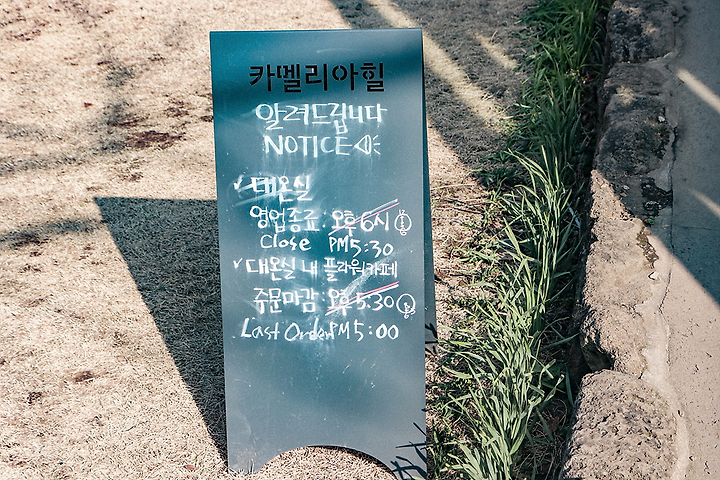 카멜리아힐
알려드립니다
NOTICE
✓ 대온실
영업종료 : 오후 6시
Close PM 5:30
✓ 대온실 내 플라워카페
주문마감 : 오후 5:30
Last Order PM 5:00